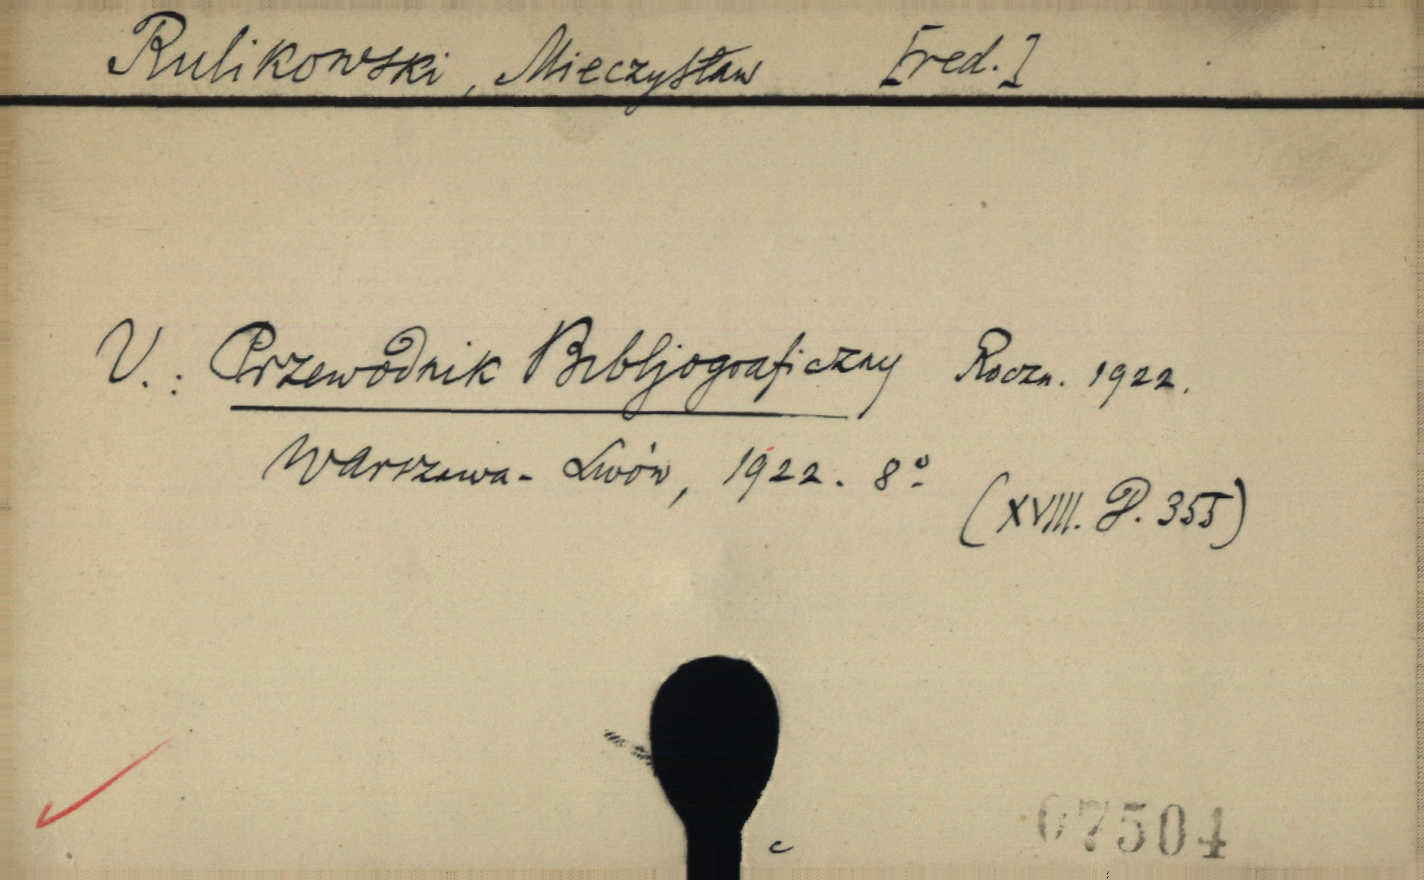 Rulikowski, Mieczysław [red.]
V.: Przewodnik Bibljograficzny Roczn. 1922.
Warszawa - Lwów, 1922. 8º
(XVIII. P. 355)
c
07504